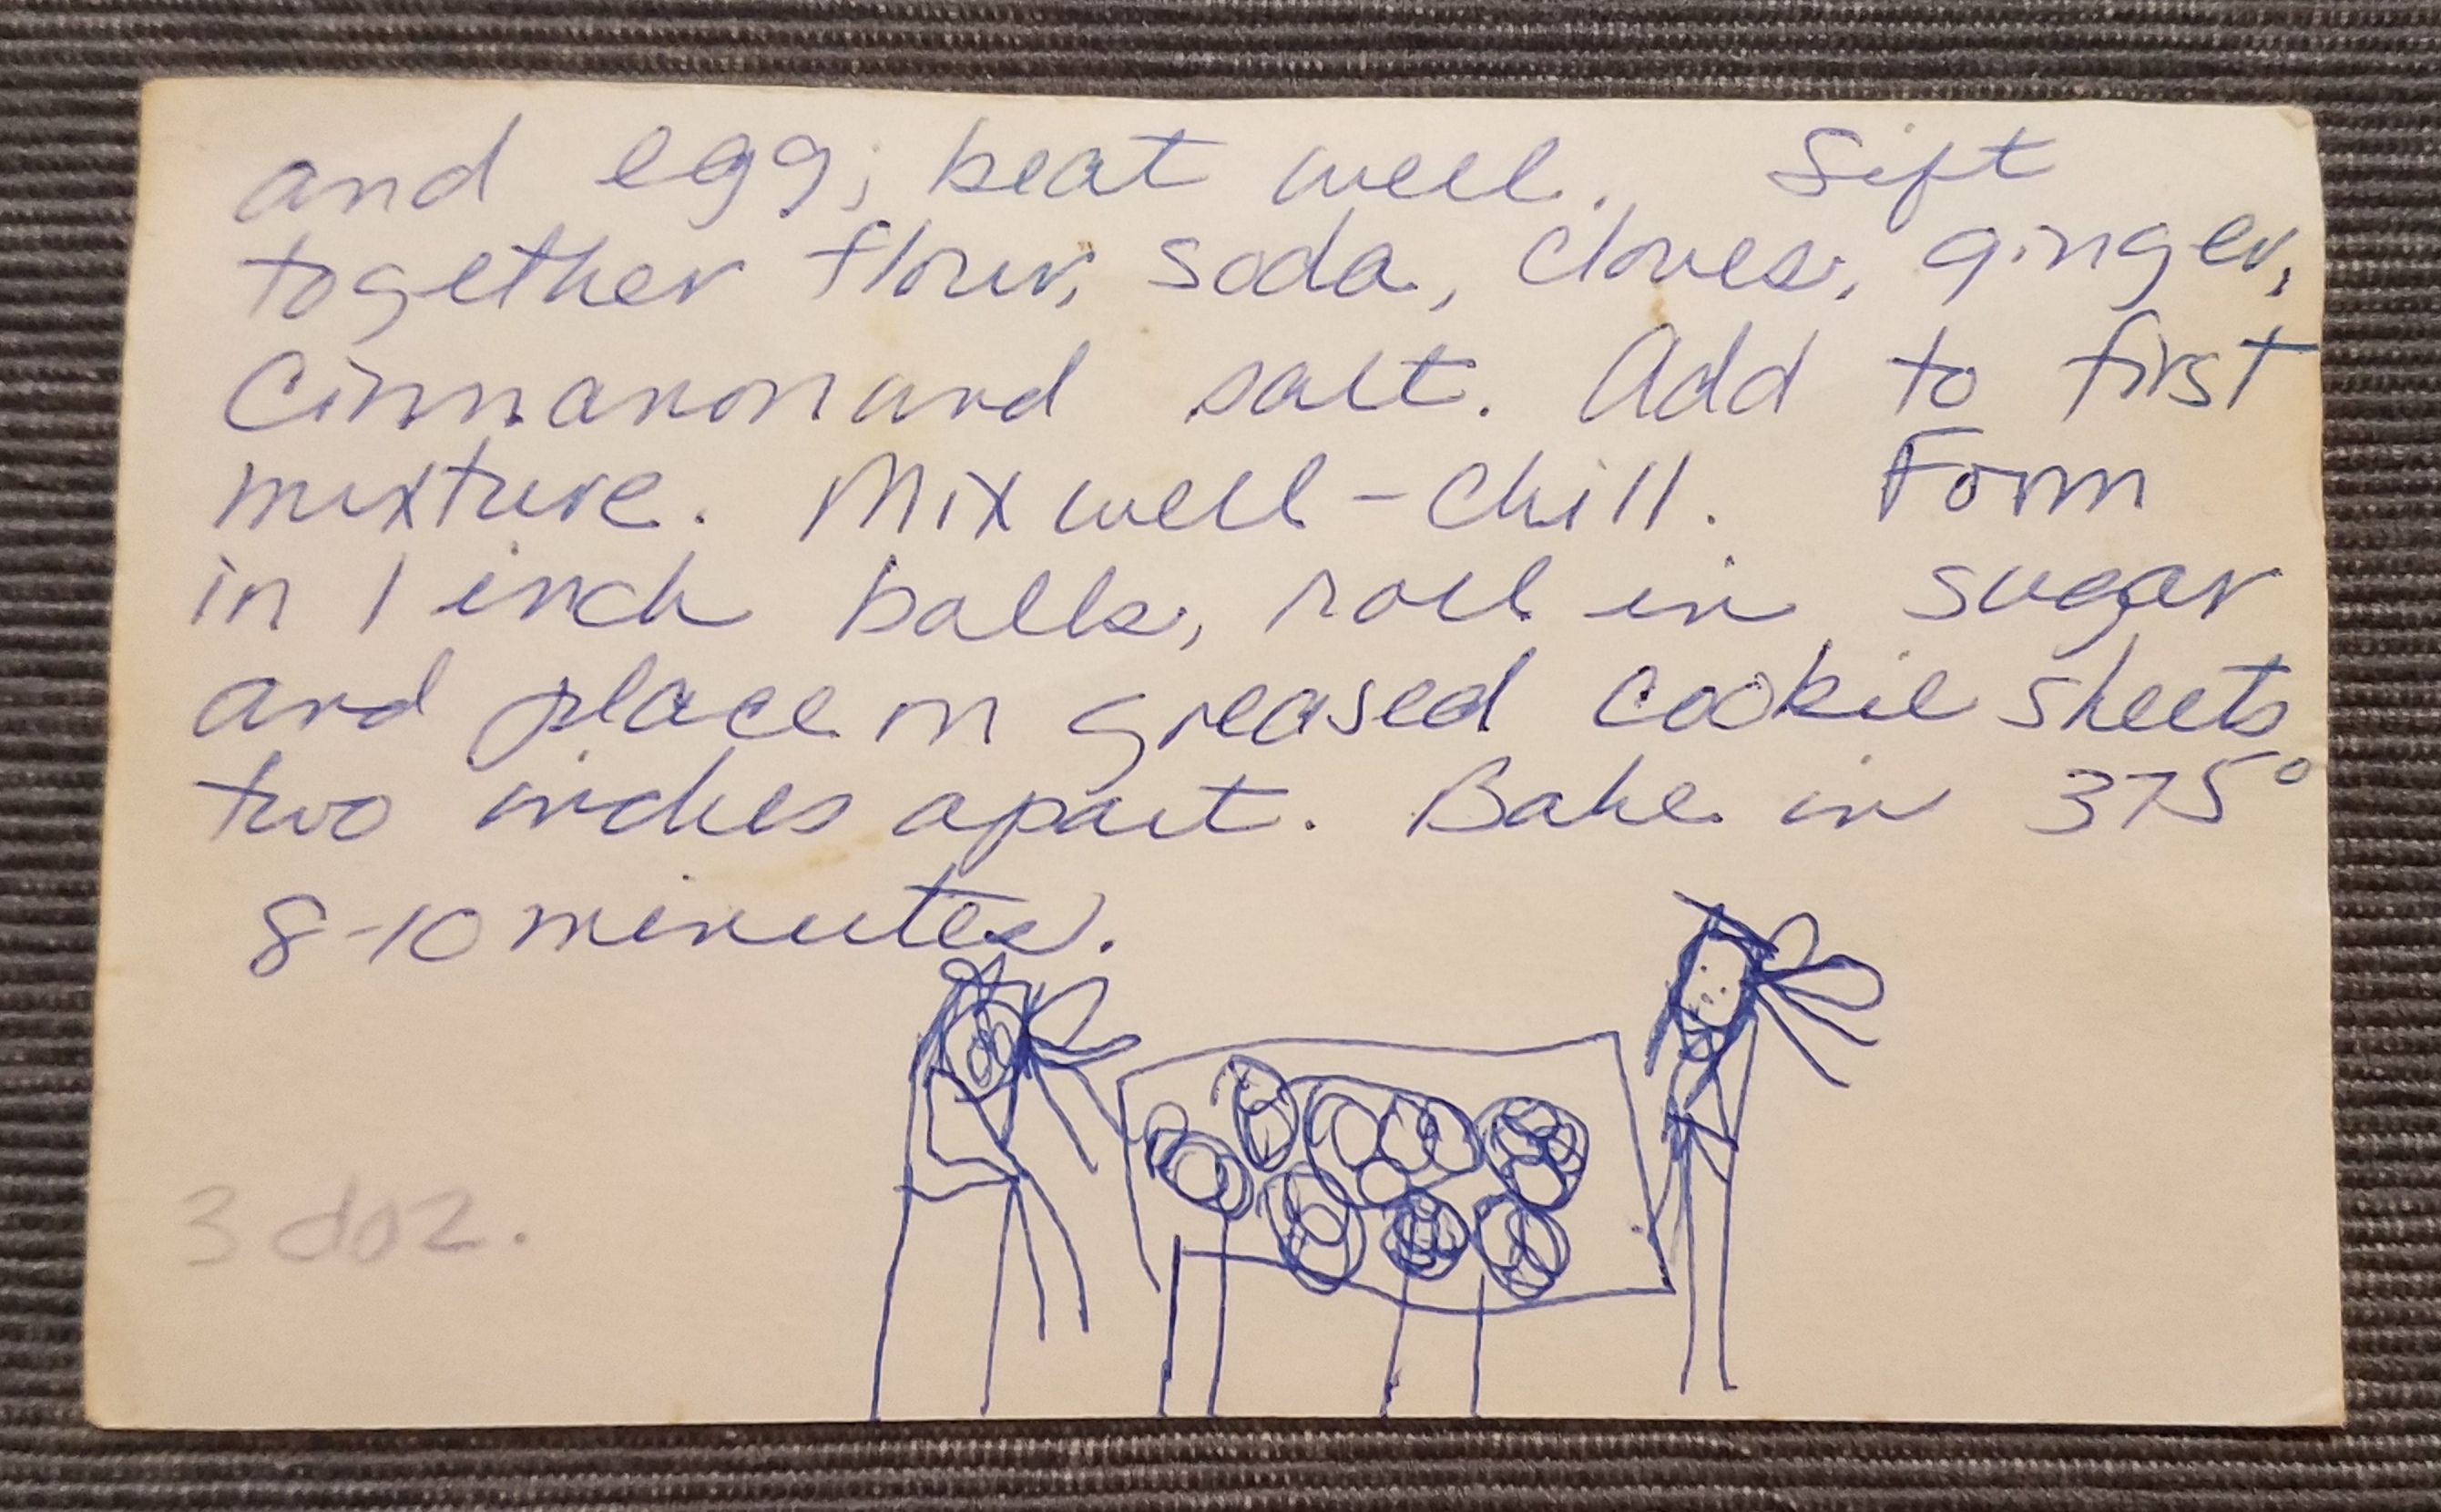 and egg; beat well. Sift
together flour, soda, cloves, ginger,
Cinnamon and salt. Add to first
mixture. Mix well - chill. Form
in 1 inch balls, roll in sugar
and place on greased cookie sheets
two inches apart. Bake in 375°
8-10 minutes.
3 doz.